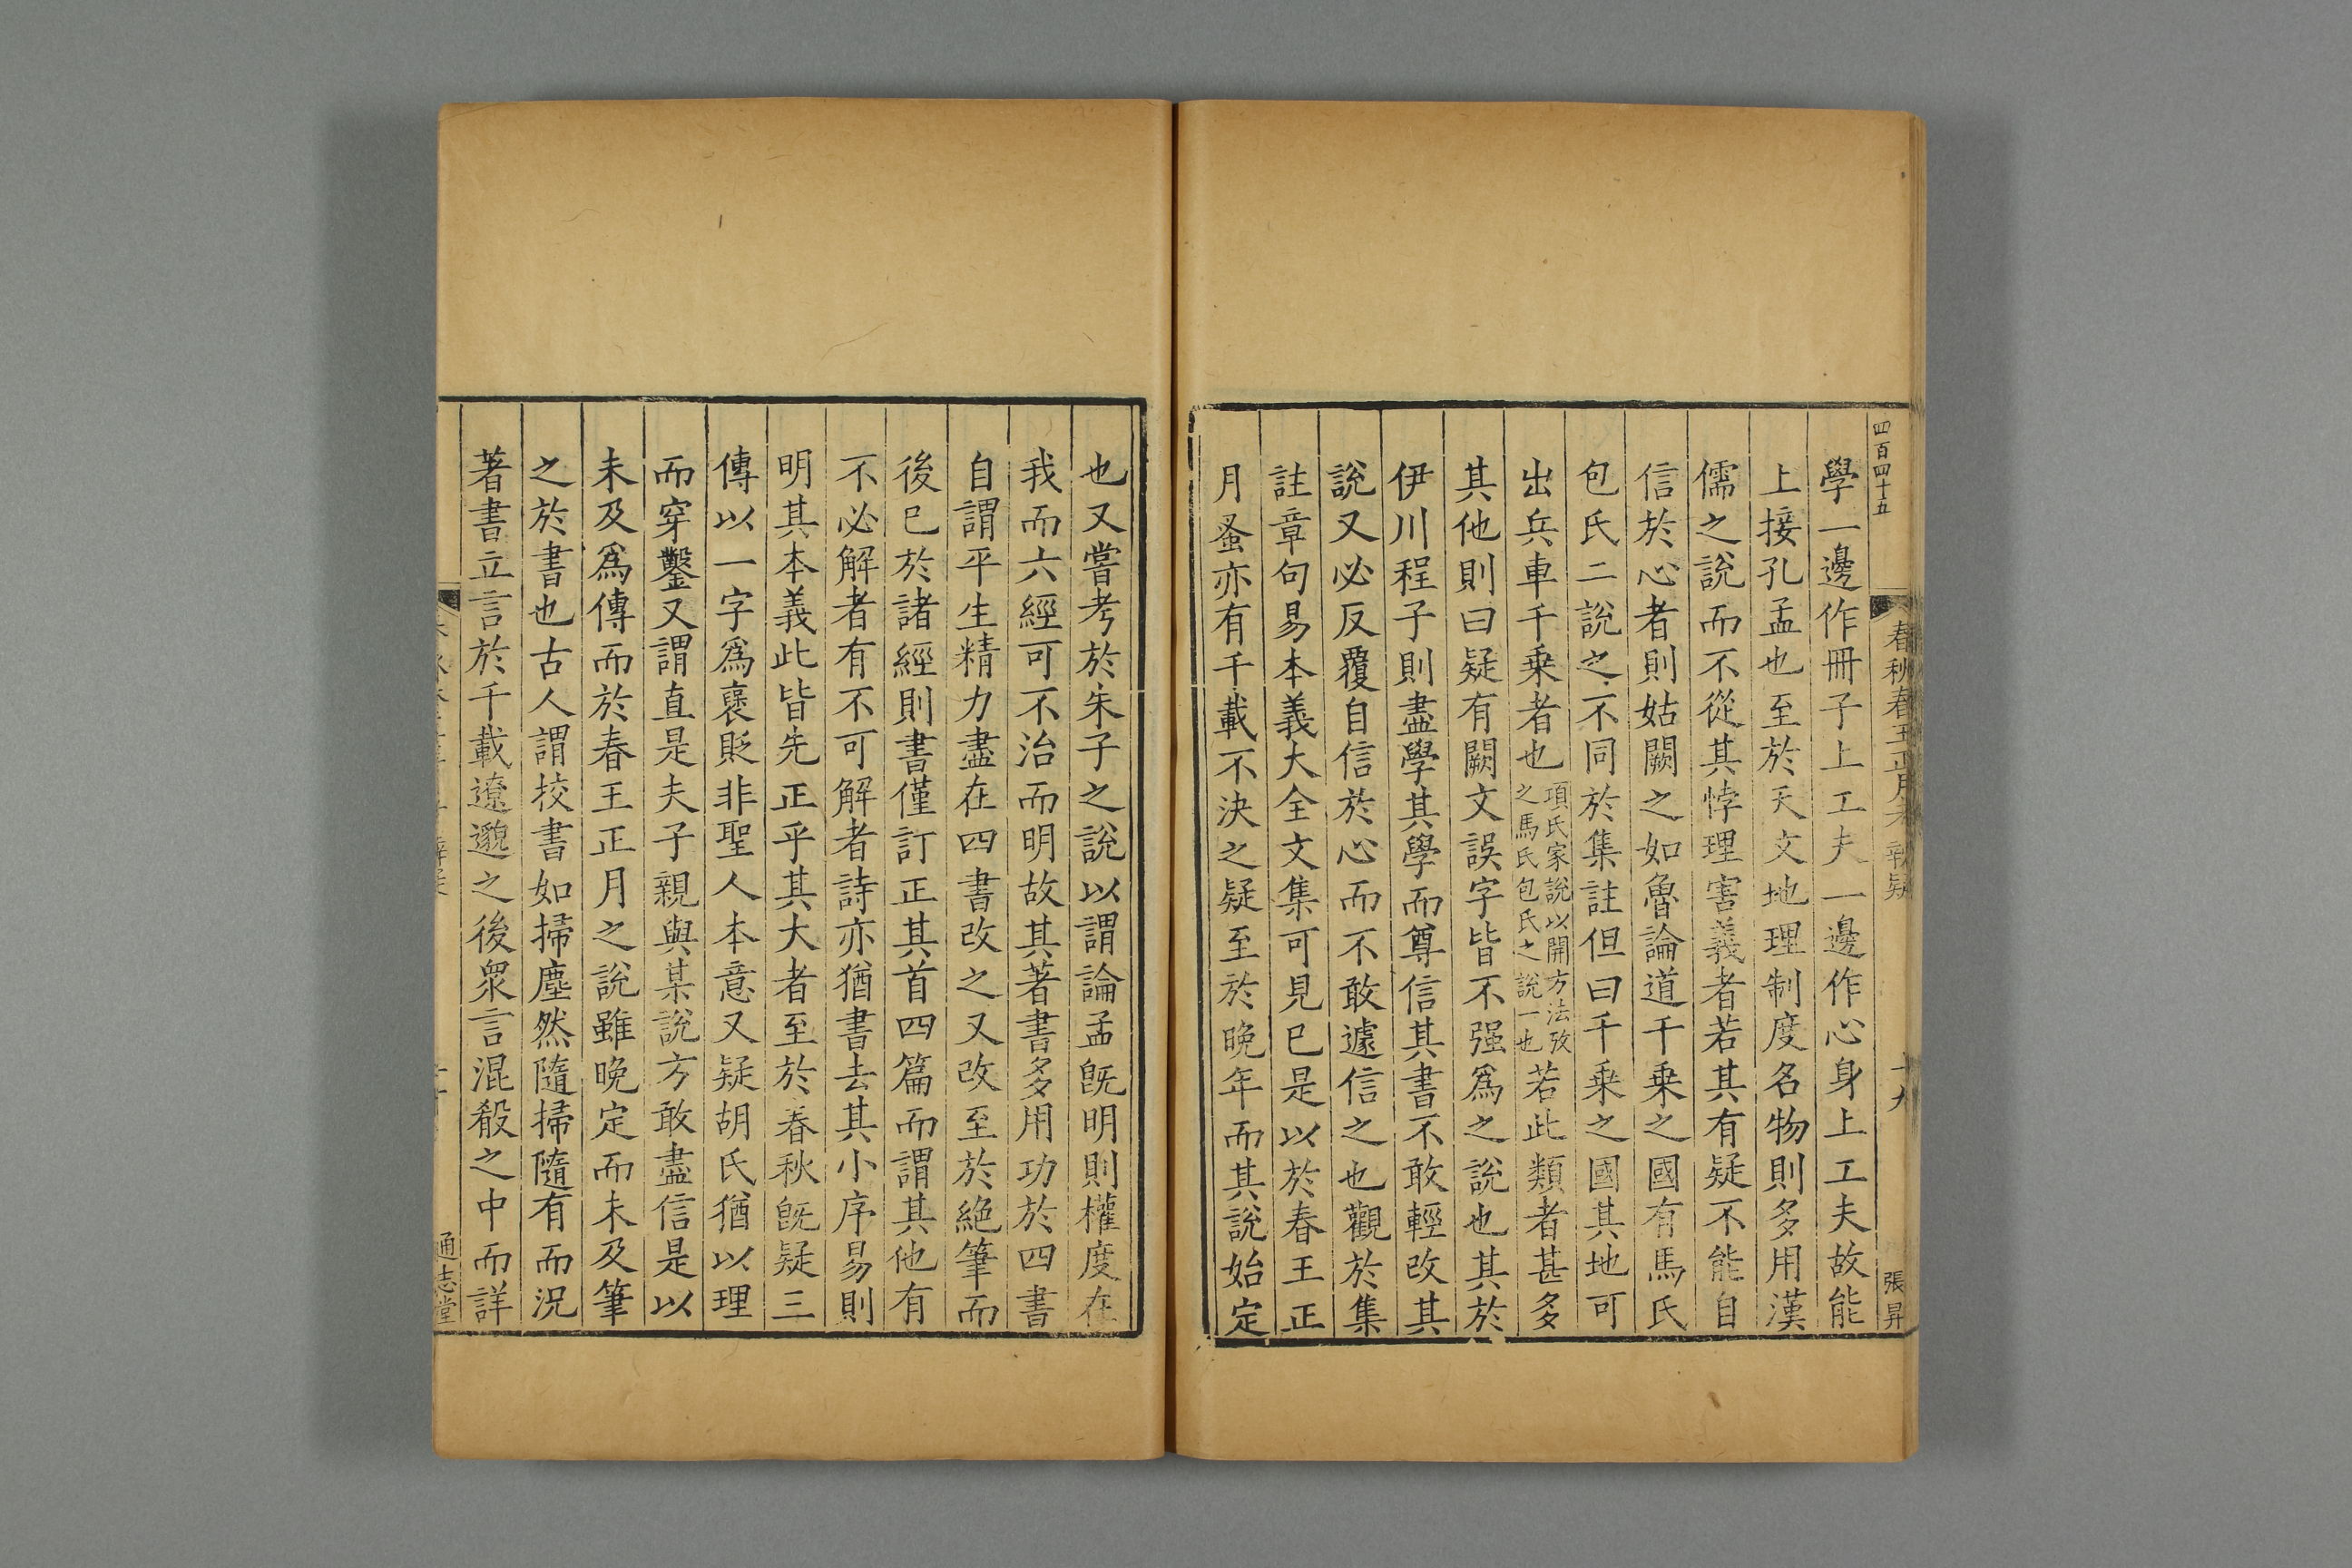 四百四十五
春秋春王正月考 辨疑
十九
張昇
學一邊作冊子上工夫一邊作心身上工夫故能
上接孔孟也至於天文地理制度名物則多用漢
儒之說而不從其悖理害義者若其有疑不能自
信於心者則姑闕之如魯論道千乗之國有馬氏
包氏二說之不同於集註但曰千乗之國其地可
出兵車千乗者也項氏家說以開方法攷之馬氏包氏之說一也若此類者甚多
其他則曰疑有闕文誤字皆不强爲之說也其於
伊川程子則盡學其學而尊信其書不敢輕改其
說又必反覆自信於心而不敢遽信之也觀於集
註章句易本義大全文集可見已是以於春王正
月蚤亦有千載不決之疑至於晚年而其說始定
也又嘗考於朱子之說以謂論孟旣明則權度在
我而六經可不治而明故其著書多用功於四書
自謂平生精力盡在四書改之又改至於絶筆而
後已於諸經則書僅訂正其首四篇而謂其他有
不必解者有不可解者詩亦猶書去其小序易則
明其本義此皆先正乎其大者至於春秋旣疑三
傳以一字爲襃貶非聖人本意又疑胡氏猶以理
而穿鑿又謂直是夫子親與某說方敢盡信是以
未及爲傳而於春王正月之說雖晚定而未及筆
之於書也古人謂校書如掃塵然隨掃隨有而況
著書立言於千載遼邈之後衆言混殽之中而詳
通志堂